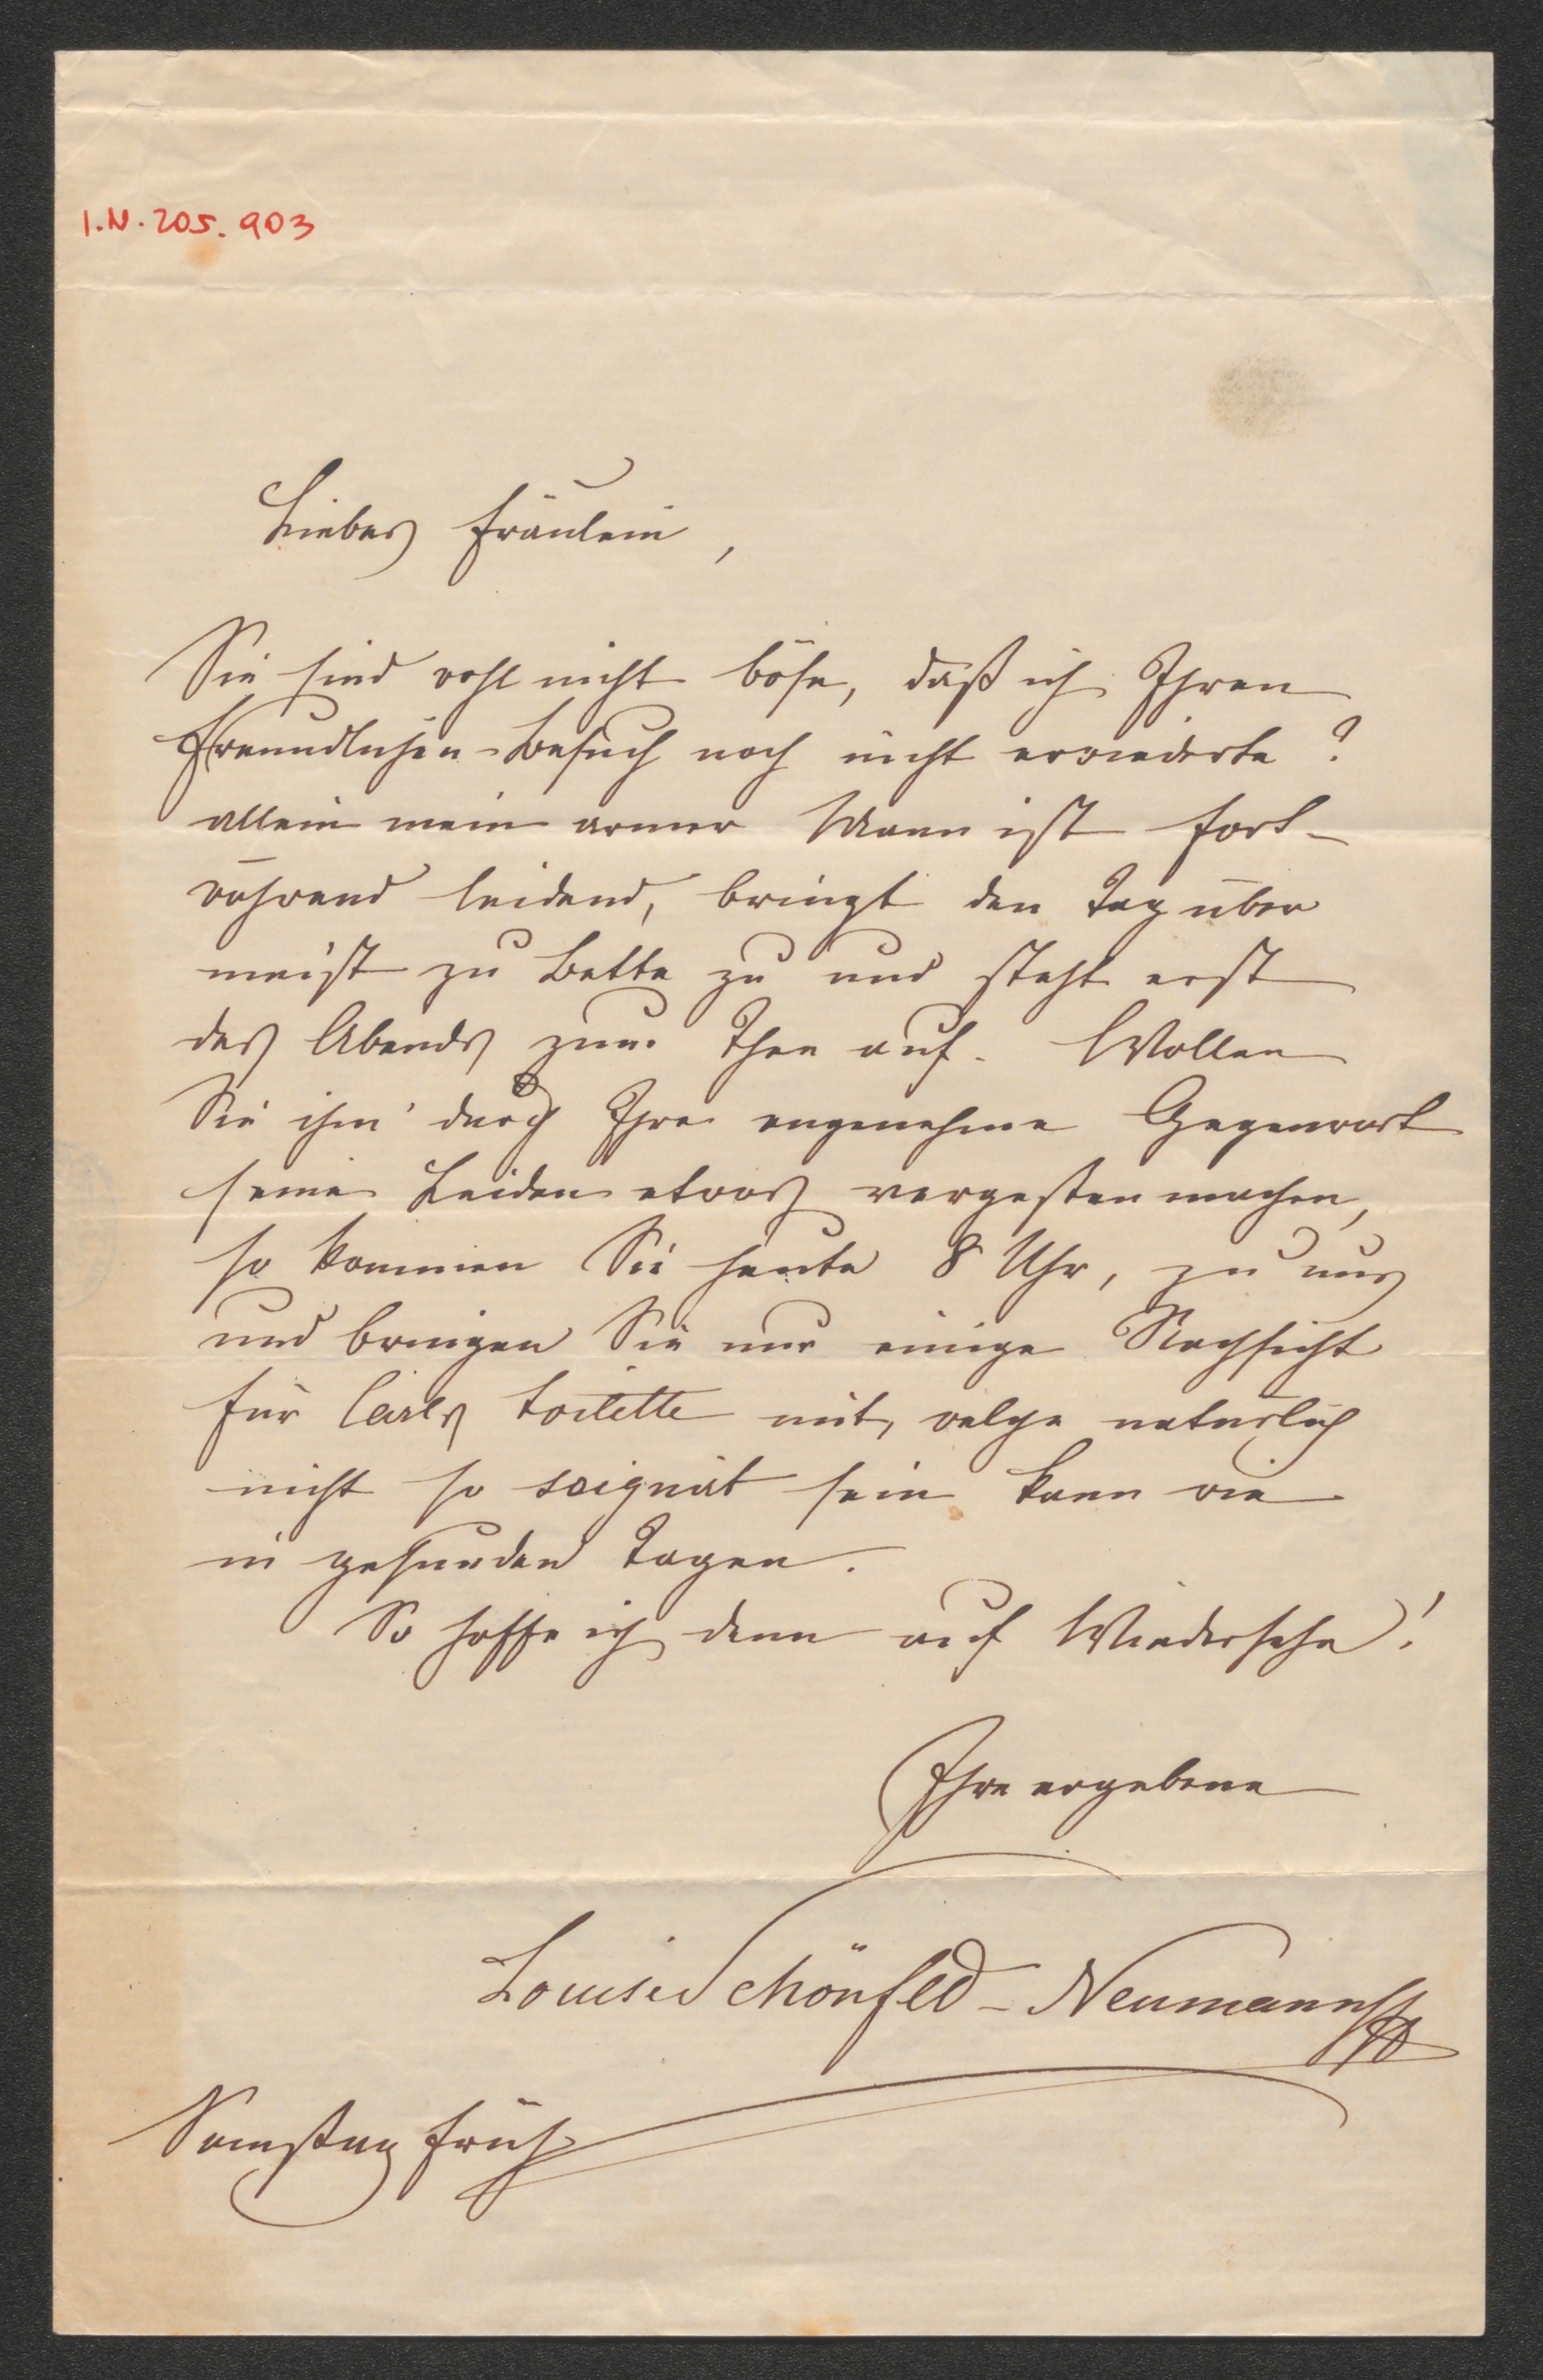 I.N. 205.903
Liebes Fräulein,
Sie sind wohl nicht böse, daß ich Ihren
freundlichen Besuch noch nicht erwiederte?
allein mein armer Mann ist fort-
während leidend, bringt den Tag über
meist zu Bette zu und steht erst
des Abends zum Thee auf. Wollen
Sie ihm durch Ihre angenehme Gegenwart
seine Leiden etwas vergessen machen,
so kommen Sie heute 8 Uhr, zu uns
und bringen Sie nur einige Nachsicht
für Carls Toilette mit, welche natürlich
nicht so soignirt sein kann wie
in gesunden Tagen.
So hoffe ich denn auf Wiedersehn!
Ihre ergebene
Louise Schönfeld-Neumann
Samstag früh